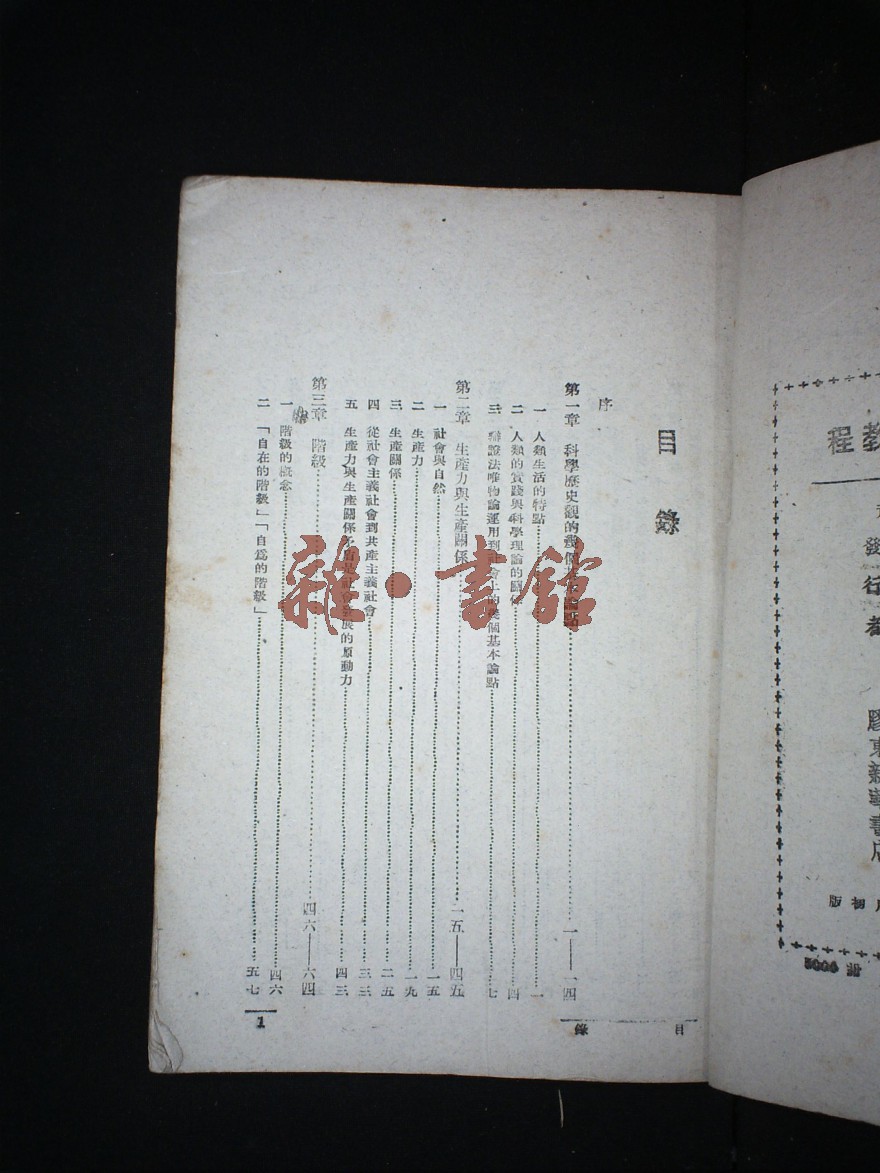 目錄
序
第一章 科學歷史觀的幾個基本論點…………一——一四
一 人類生活的特點…………一
二 人類的實踐與科學理論的關係…………四
三 辯證法唯物論運用到社會上的幾個基本論點…………七
第二章 生產力與生產關係…………一五——四五
一 社會與自然…………一五
二 生產力…………一九
三 生產關係…………二五
四 從社會主義社會到共產主義社會…………三三
五 生產力與生產關係矛盾是社會發展的原動力…………四三
第三章 階級…………四六——六四
一 階級的概念…………四六
二 「自在的階級」「自爲的階級」…………五七
目 錄
1
教程
發行者
膠東新華書店
初版
雜·書館